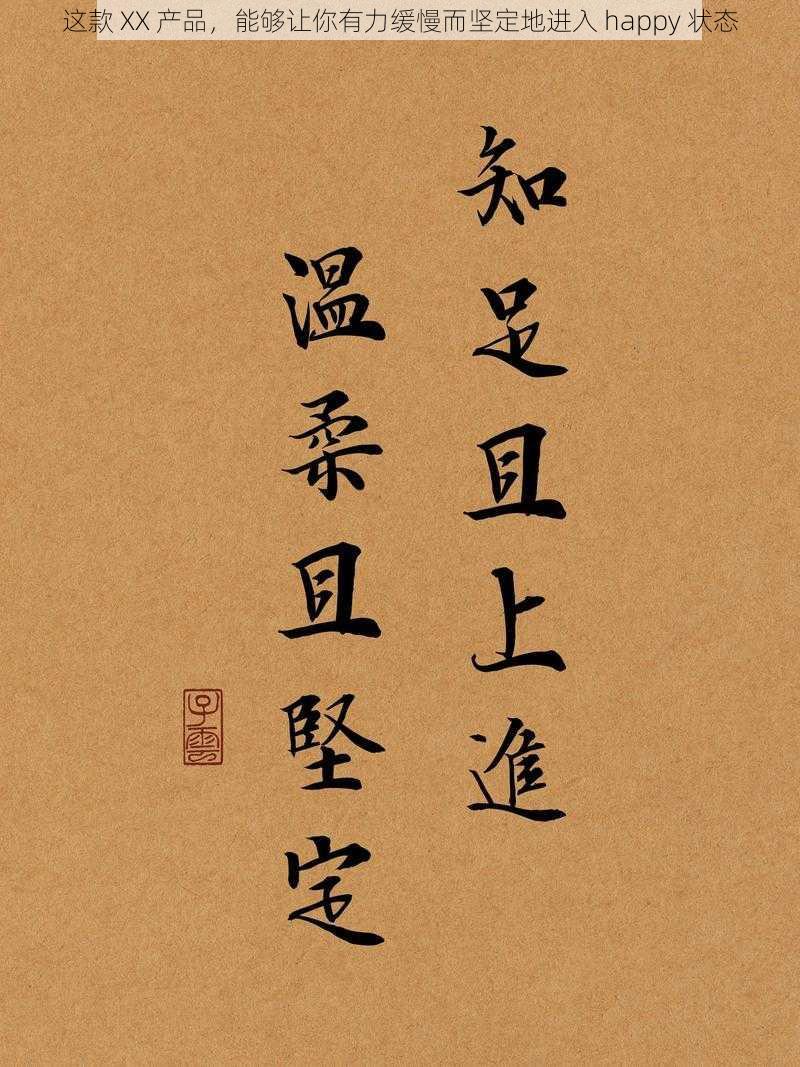 这款 XX 产品，能够让你有力缓慢而坚定地进入 happy 状态
知足且上進
温柔且堅定
子雲